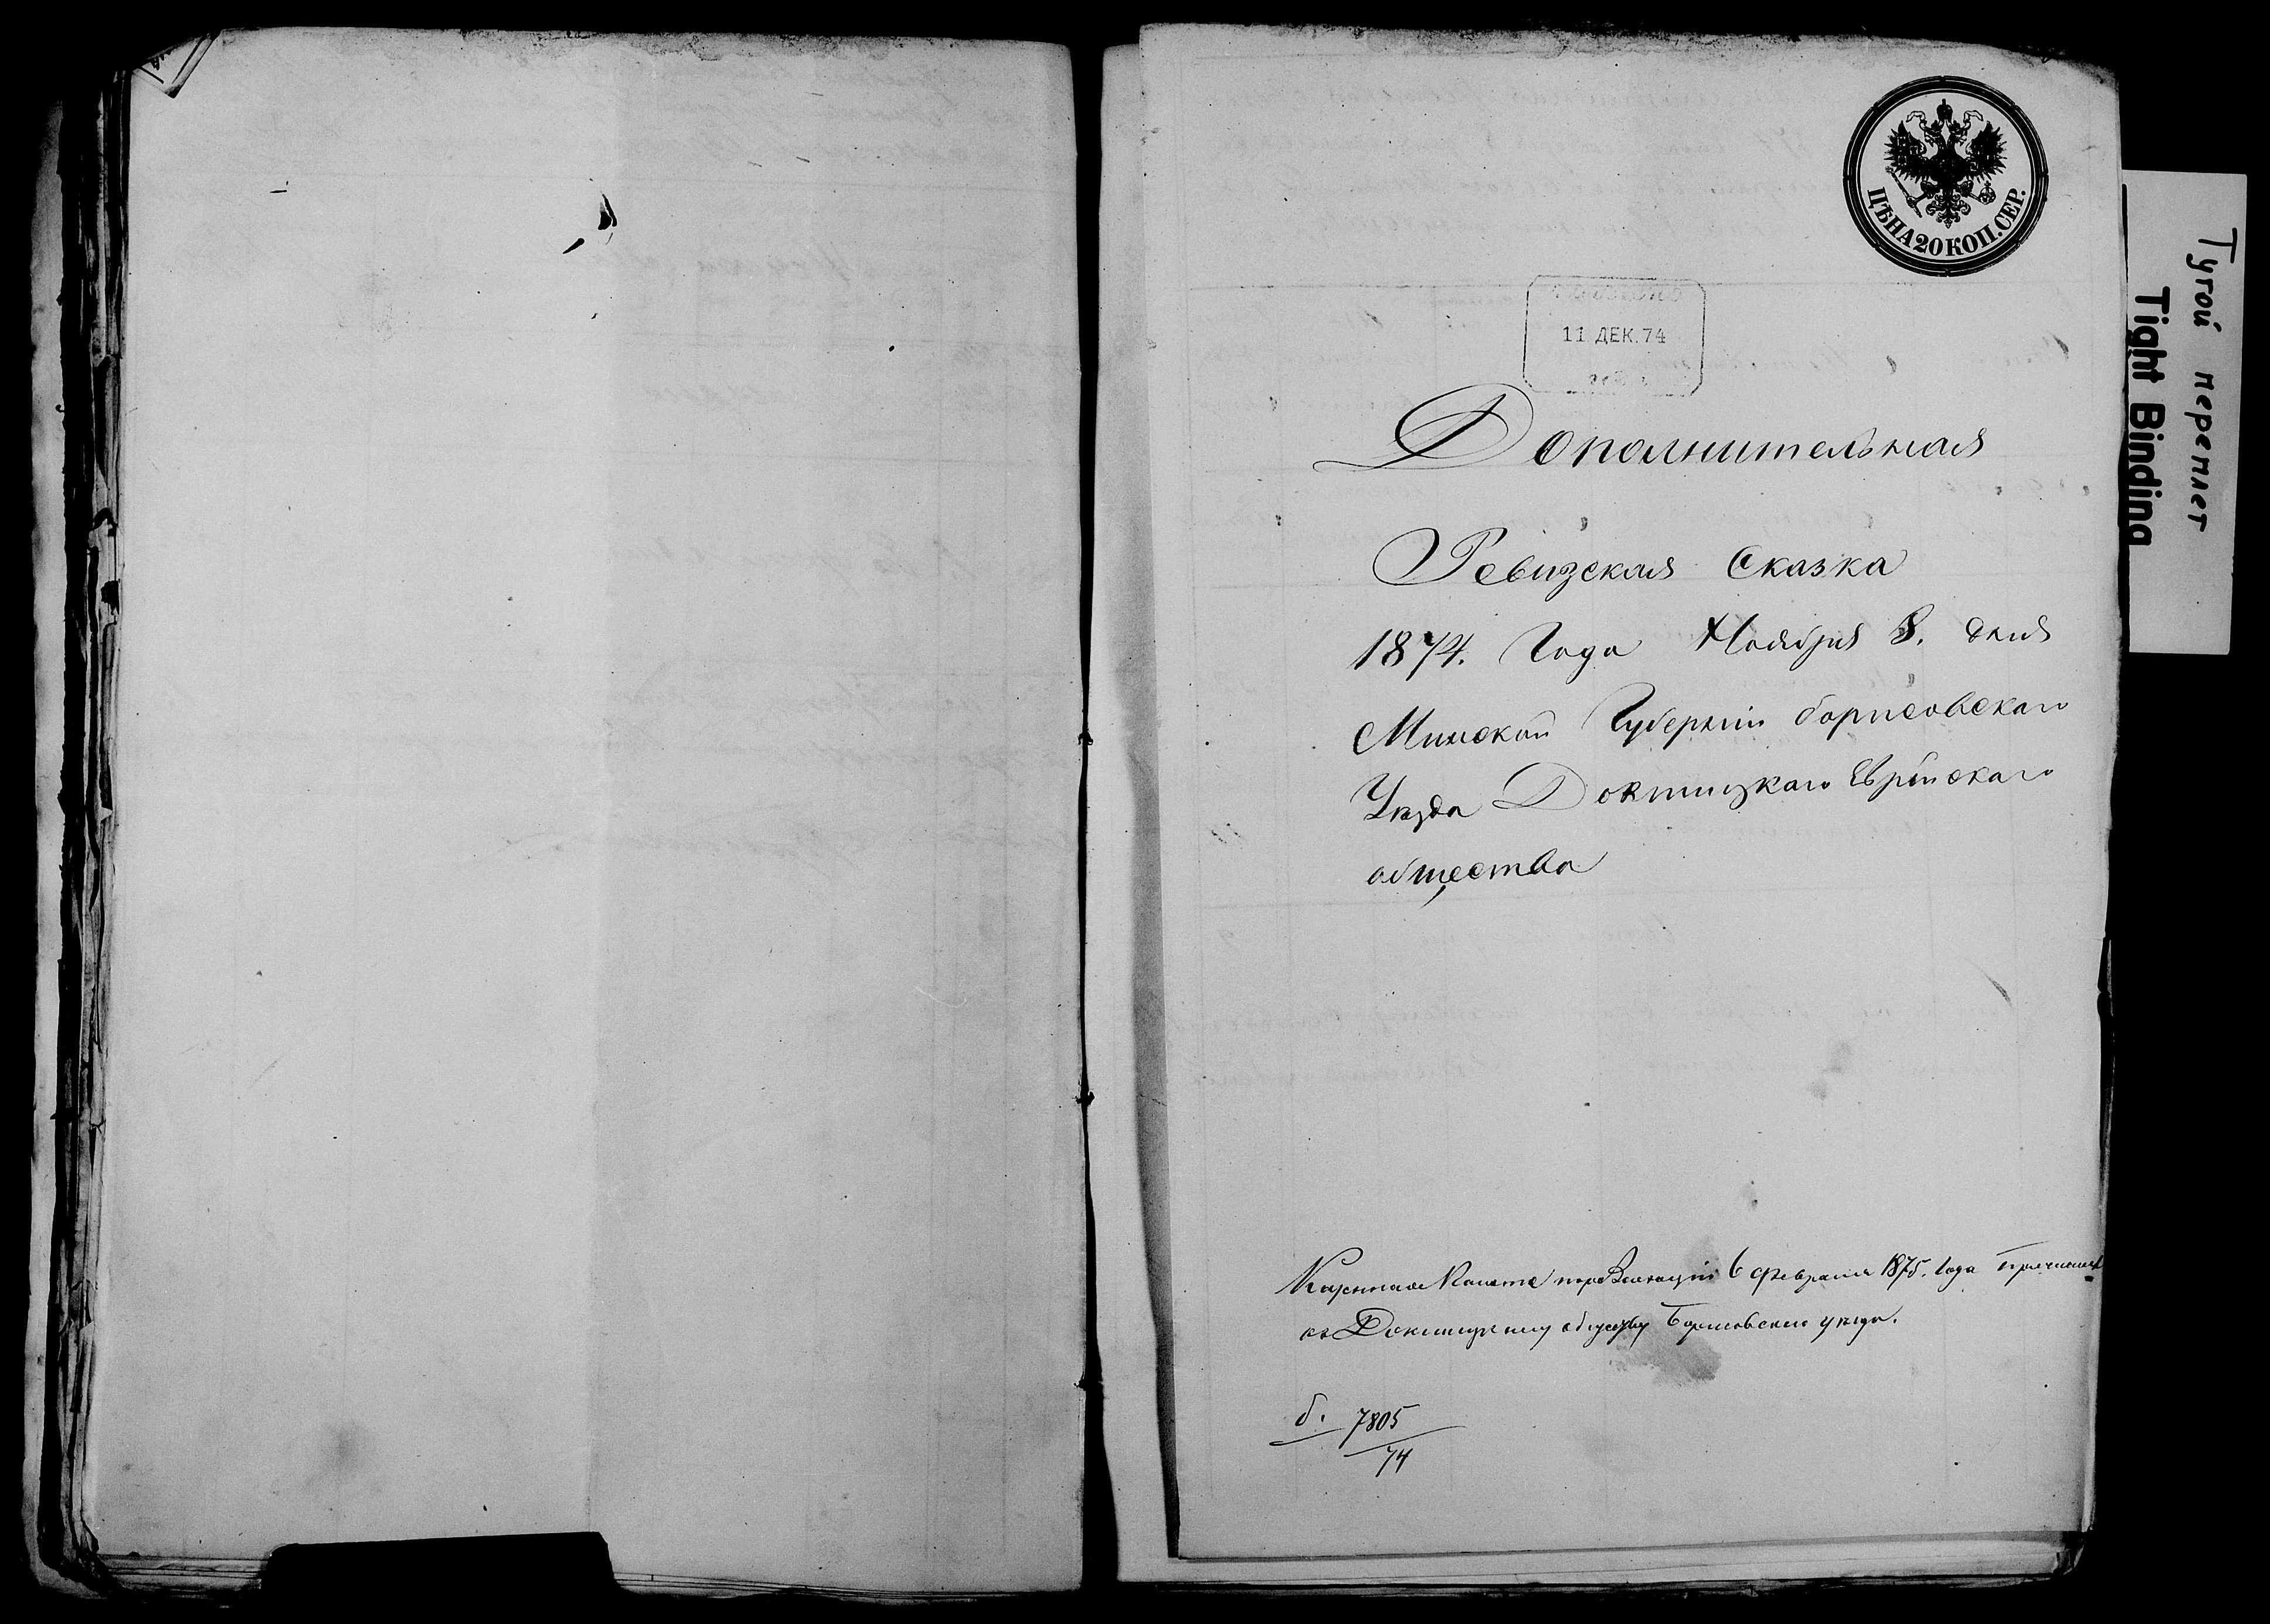 ЦѢНА 20 КОП. СЕР.
11 ДЕК. 74
Дополнительная
Ревизская Сказка
1874. Года Ноября 8. дня
Минской Губерніи Борисовскаго
Уѣзда Докшицкаго Еврейскаго
общества
Казенная Палата 6 Февраля 1875. года
къ Докшицкому обществу Борисовскаго уѣзда.
б. 7805
74
Тугой переплет
Tight Binding